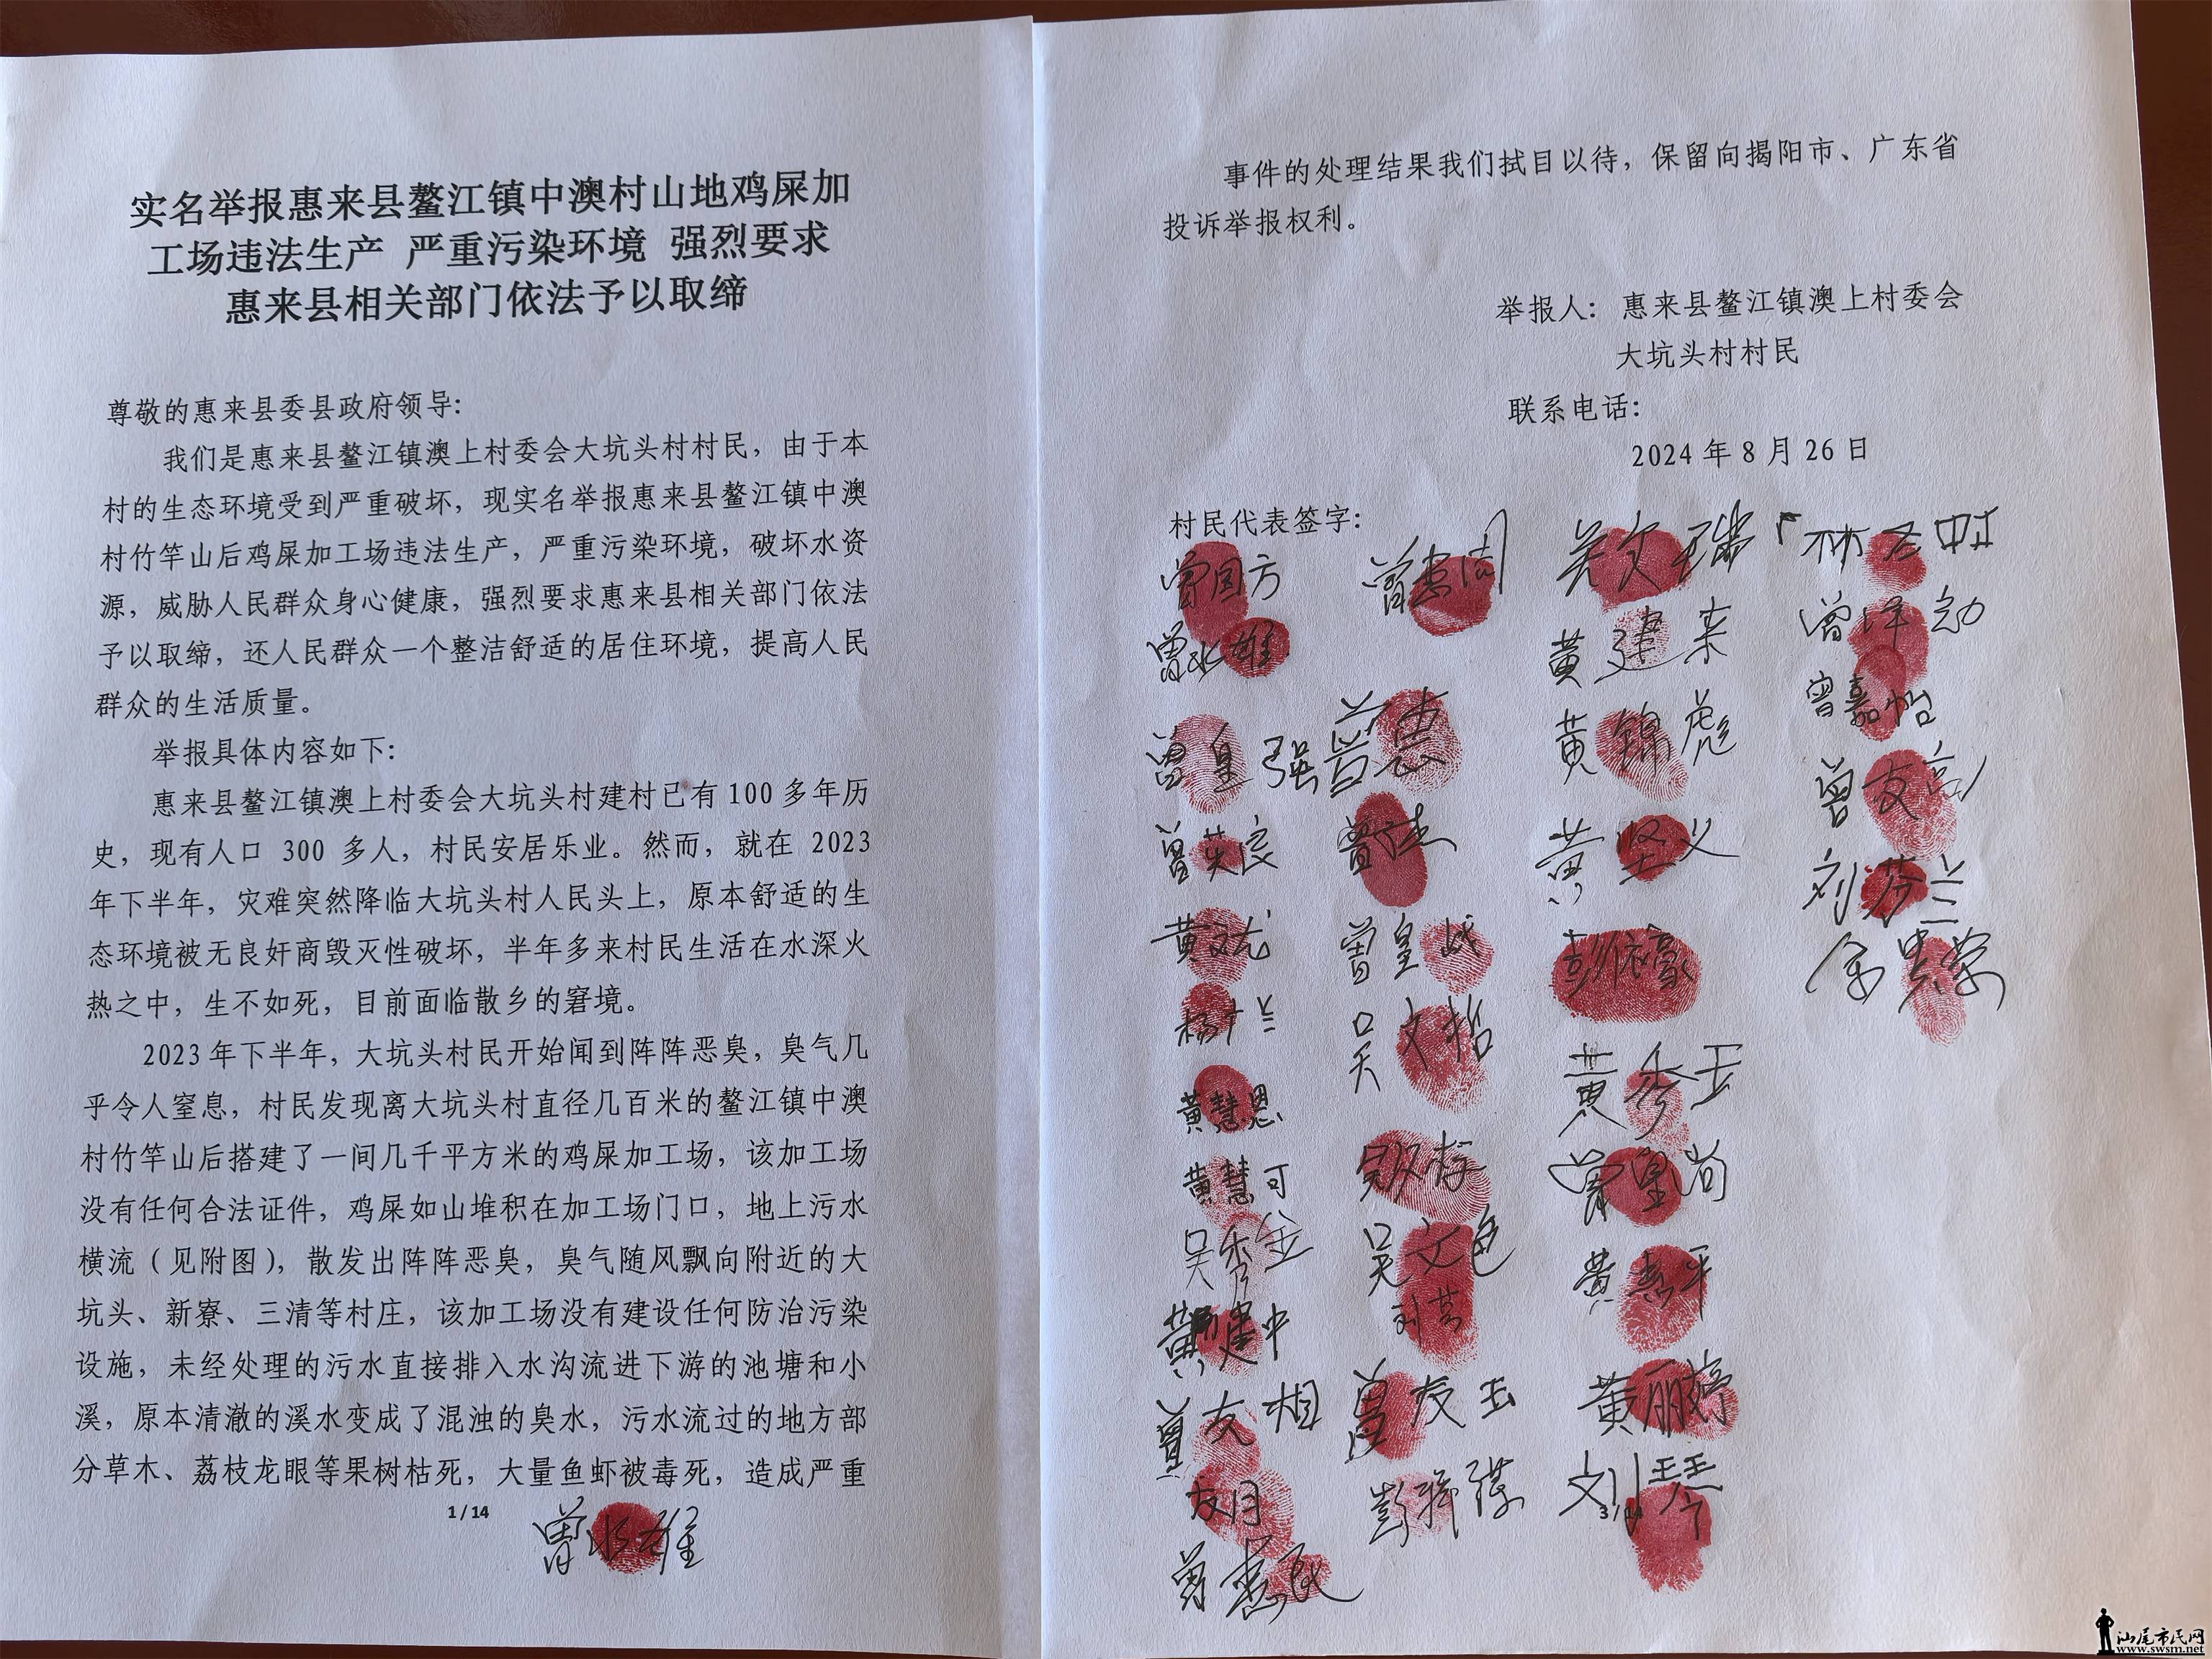 实名举报惠来县鳌江镇中澳村山地鸡屎加
工场违法生产 严重污染环境 强烈要求
惠来县相关部门依法予以取缔
尊敬的惠来县委县政府领导:
我们是惠来县鳌江镇澳上村委会大坑头村村民，由于本
村的生态环境受到严重破坏，现实名举报惠来县鳌江镇中澳
村竹竿山后鸡屎加工场违法生产，严重污染环境，破坏水资
源，威胁人民群众身心健康，强烈要求惠来县相关部门依法
予以取缔，还人民群众一个整洁舒适的居住环境，提高人民
群众的生活质量。
举报具体内容如下:
惠来县鳌江镇澳上村委会大坑头村建村已有100多年历
史，现有人口 300 多人，村民安居乐业。然而，就在 2023
年下半年，灾难突然降临大坑头村人民头上，原本舒适的生
态环境被无良奸商毁灭性破坏，半年多来村民生活在水深火
热之中，生不如死，目前面临散乡的窘境。
2023年下半年，大坑头村民开始闻到阵阵恶臭，臭气几
乎令人窒息，村民发现离大坑头村直径几百米的鳌江镇中澳
村竹竿山后搭建了一间几千平方米的鸡屎加工场，该加工场
没有任何合法证件，鸡屎如山堆积在加工场门口，地上污水
横流（见附图），散发出阵阵恶臭，臭气随风飘向附近的大
坑头、新寮、三清等村庄，该加工场没有建设任何防治污染
设施，未经处理的污水直接排入水沟流进下游的池塘和小
溪，原本清澈的溪水变成了混浊的臭水，污水流过的地方部
分草木、荔枝龙眼等果树枯死，大量鱼虾被毒死，造成严重
1/14
曾水雄
事件的处理结果我们拭目以待，保留向揭阳市、广东省
投诉举报权利。
举报人: 惠来县鳌江镇澳上村委会
大坑头村村民
联系电话:
2024年8月26日
村民代表签字:
曾国方 吴文瑞
曾水雄 黄建来
曾嘉怡
曾皇强 曾惠 黄锦虎
曾英良 黄坚义 刘芬兰
杨广兰 吴文哲
黄慧恩 黄秀玉
黄慧可
吴秀金 吴文色 黄惠平
黄建中
曾友相 曾友玉 黄丽婷
友月 刘琴
3/14
曾惠民
汕尾市民网
www.swsm.net